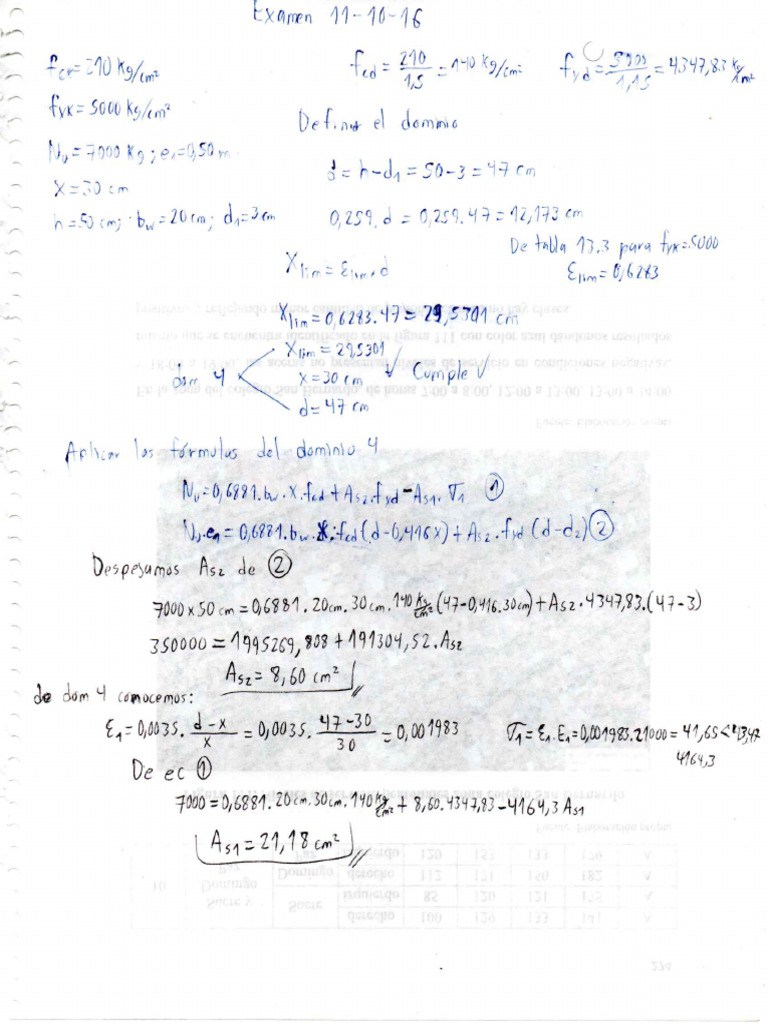 Examen 11-10-16
fck=210 Kg/cm² fcd = 210/1,5 = 140 Kg/cm² fyd = 5000/1,15 = 4347,83 Kg/cm²
fyk = 5000 Kg/cm²
Definir el dominio
Nu = 7000 Kg ; e1=0,50 m
d = h-d1 = 50-3 = 47 cm
X = 30 cm
h = 50 cm; bw = 20 cm; d1=3 cm
0,259.d = 0,259.47 = 12,173 cm
De tabla 13.3 para fyk=5000
Ɛlim = 0,6283
Xlim = Ɛlim.d
Xlim = 0,6283.47 = 29,5301 cm
dom 4
Xlim = 29,5301
x = 30 cm
d = 47 cm
√ Cumple √
Aplicar las fórmulas del dominio 4
Nu = 0,6881.bw.X.fcd + As2.fyd - As1.σ1 ①
Nu.e1 = 0,6881.bw.X.fcd(d-0,416x) + As2.fyd (d-d2) ②
Despejamos As2 de ②
7000 x 50 cm = 0,6881.20cm.30cm.140 Kg/cm² (47-0,416.30cm) + As2.4347,83.(47-3)
350000 = 1995269,808 + 191304,52.As2
As2 = 8,60 cm²
de dom 4 conocemos:
Ɛ1 = 0,0035. d-x/x = 0,0035. 47-30/30 = 0,001983 σ1 = Ɛ1.E1 = 0,001983.21000 = 41,65 <
4164,3
De ec ①
7000 = 0,6881.20cm.30cm.140 Kg/cm² + 8,60.4347,83 - 4164,3 As1
As1 = 21,18 cm²